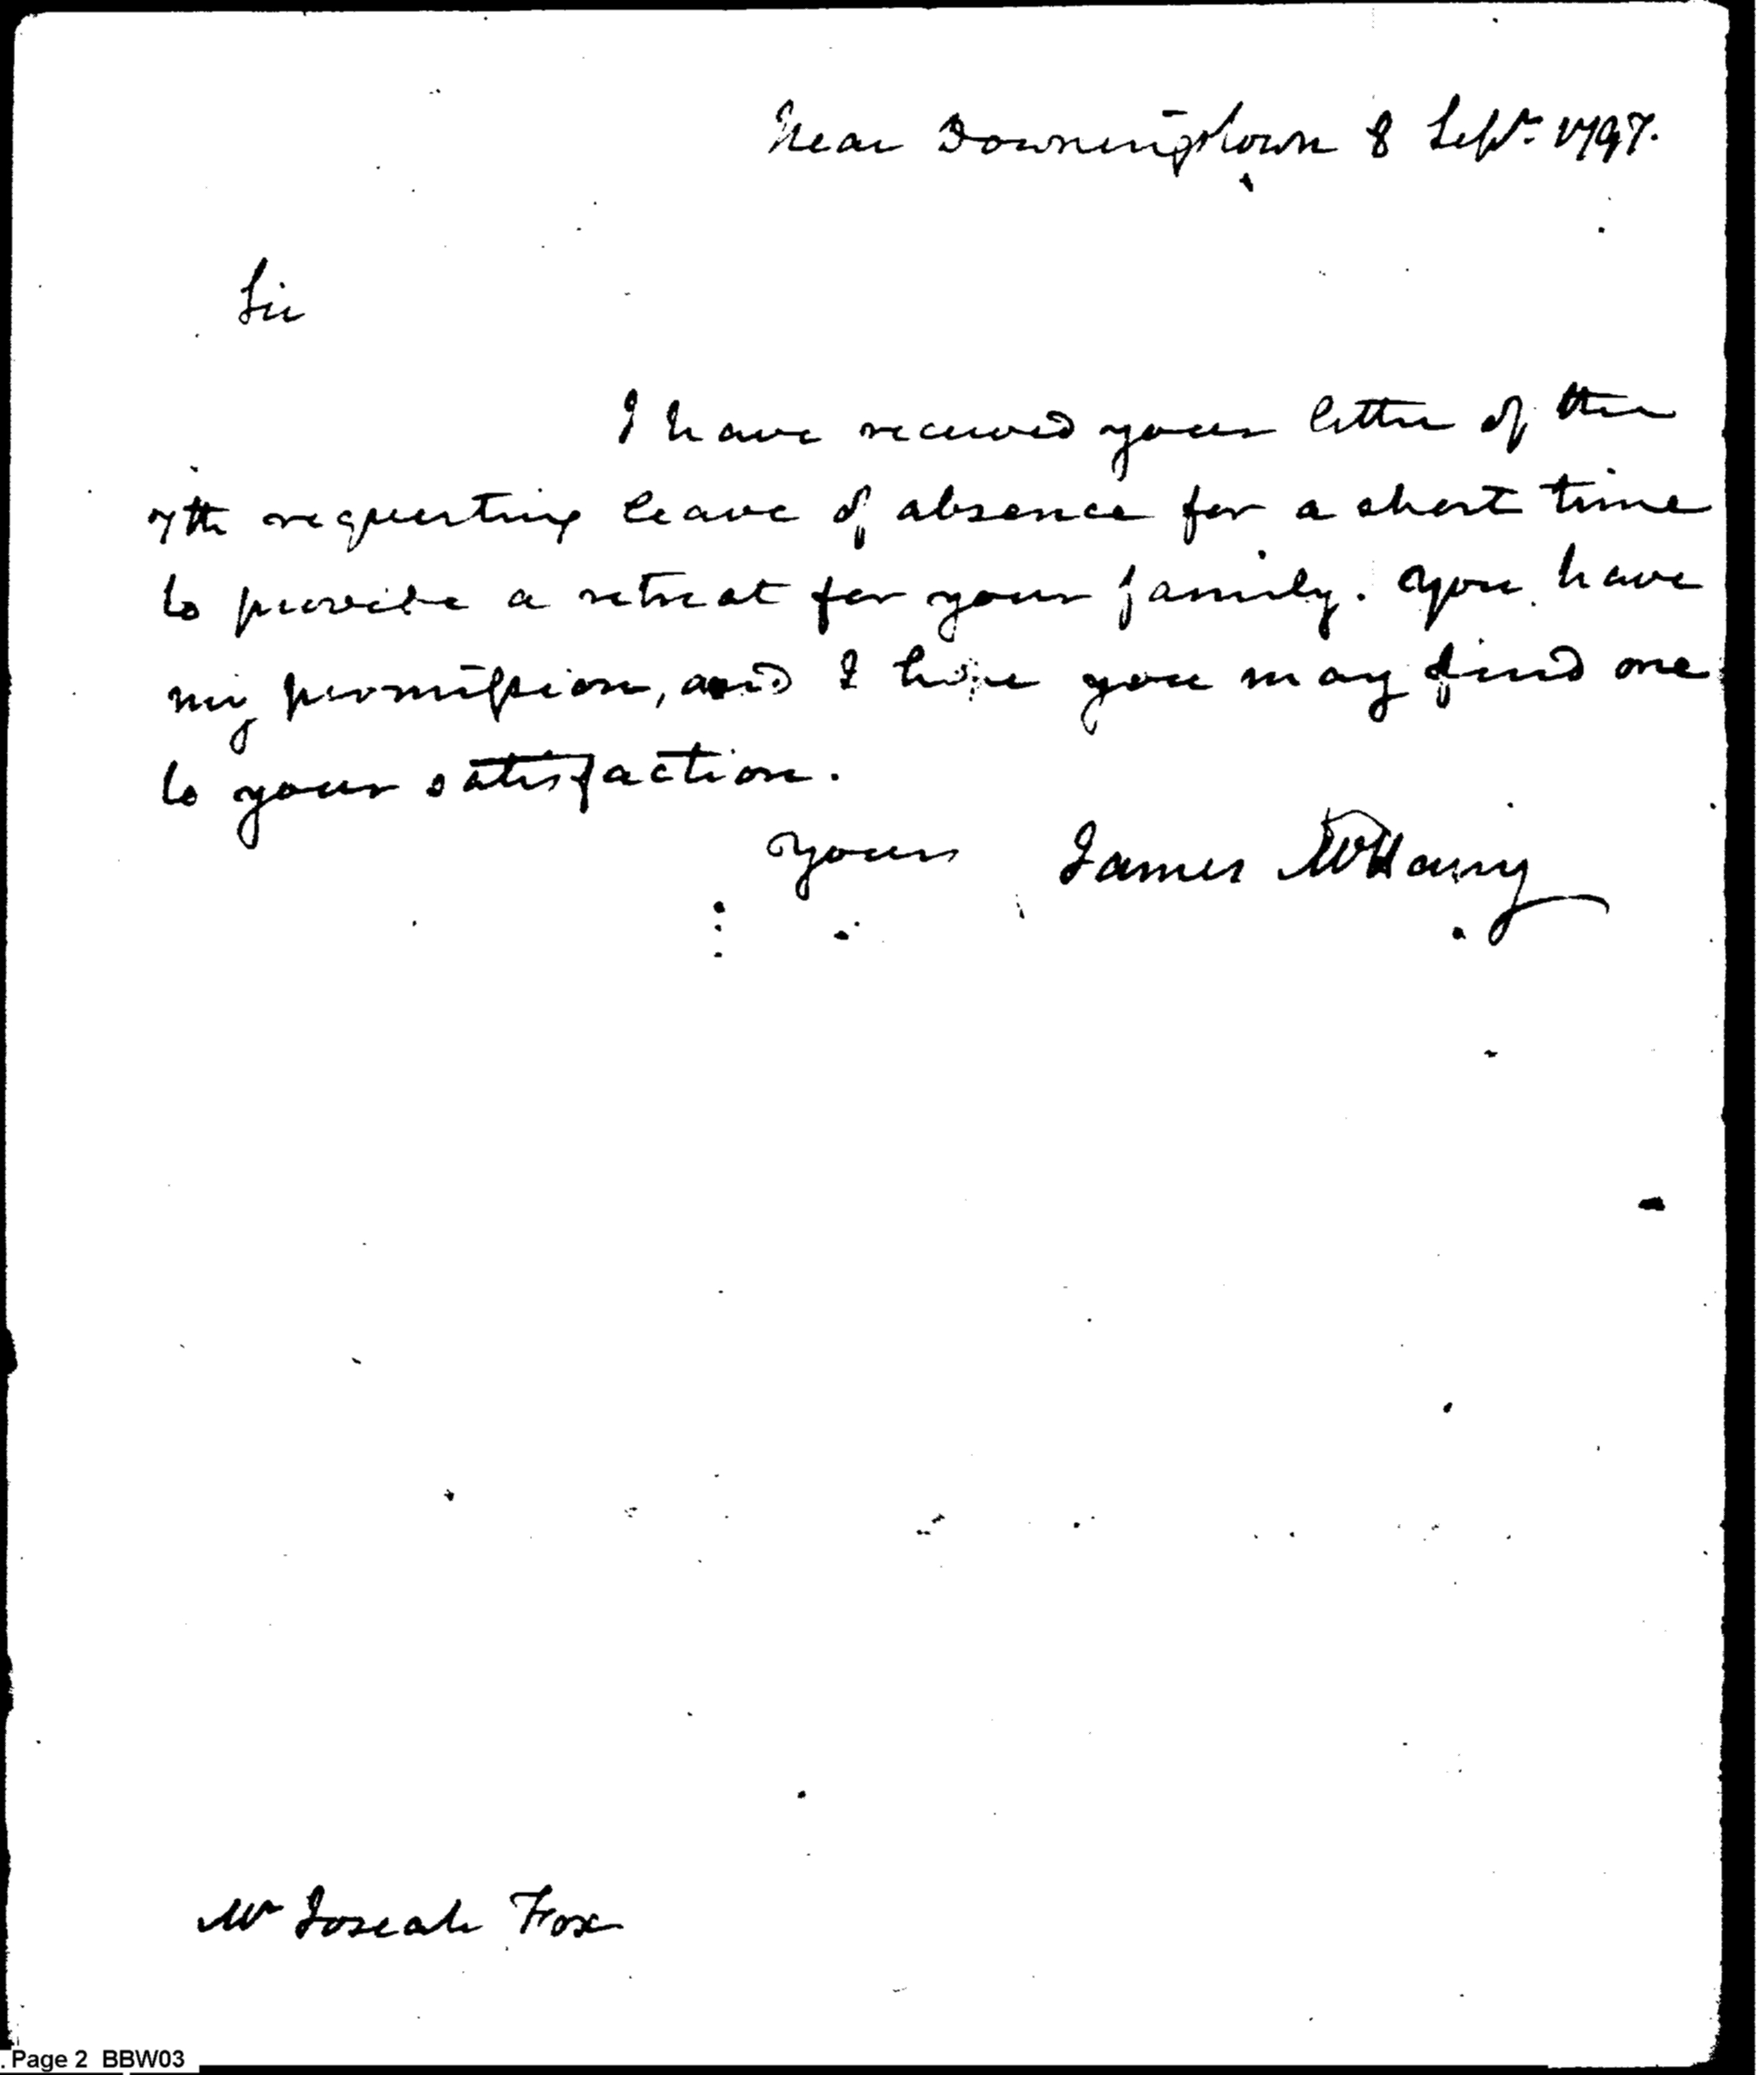 Near Downingtown 8 Sept. 1797.
Sir
I have received your letter of the
7th requesting leave of absence for a short time
to provide a retreat for your family. You have
my permission, and I hope you may find one
to your satisfaction.
Yours James McHenry
Mr Josiah Fox
. Page 2 BBW03